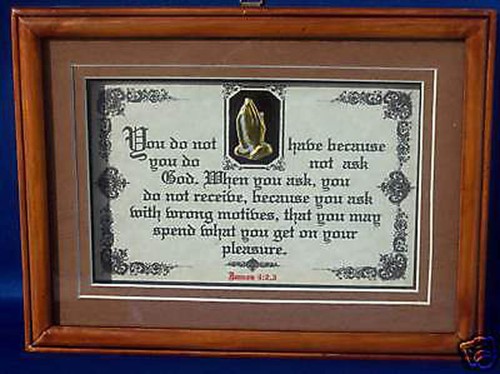 You do not have because
you do not ask
God. When you ask, you
do not receive, because you ask
with wrong motives, that you may
spend what you get on your
pleasure.
James 4:2,3